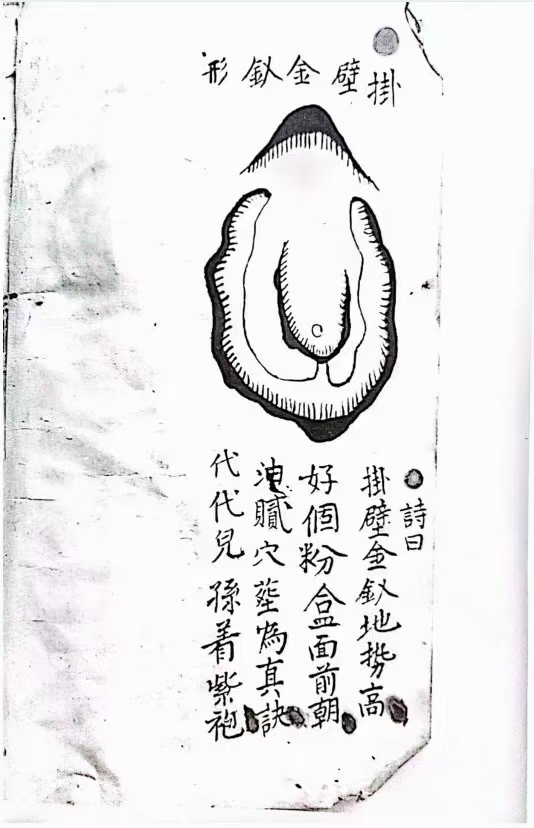 掛壁金釵形
詩曰
掛壁金釵地勢高
好個粉盒面前朝
油膩穴塟為真訣
代代兒孫着紫袍